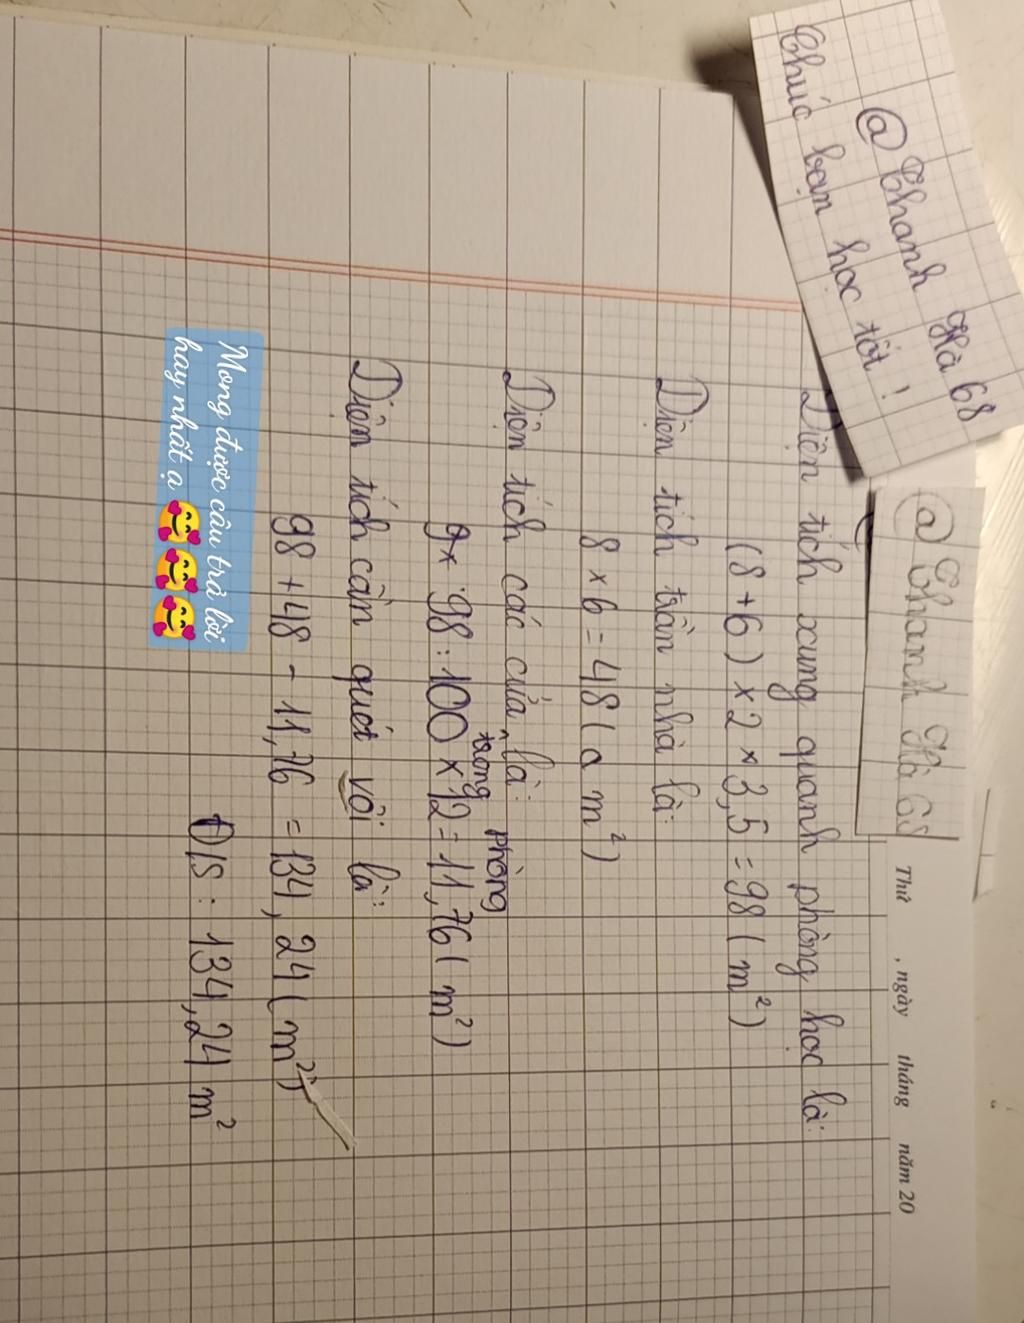 @ Thanh Hà 68
Chúc bạn học tốt !
@ Thanh Hà 68
Thứ , ngày tháng năm 20
Diện tích xung quanh phòng học là:
(8 + 6) × 2 × 3,5 = 98 ( m²)
Diện tích trần nhà là:
8 × 6 = 48 ( m²)
Diện tích các cửa trong phòng là:
9 × 98 : 100 × 12 = 11,76 ( m²)
Diện tích cần quét vôi là:
98 + 48 - 11,76 = 134,24 ( m²)
Đ/S : 134,24 m²
Mong được câu trả lời
hay nhất ạ 🥰🥰🥰